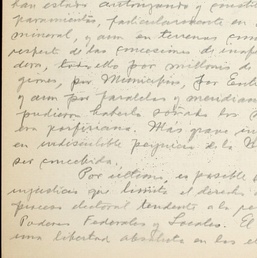 han estado autorizando y constit
paramientos, particularmente en
mineral, y aun en terrenos com
respecto de las concesiones de inaf
dera, todo ello por millones de
gines, por Municipios, por Enti
y aun por paralelos y meridian
pudieron haberlo soñado los
era porfiriana. Mas grave
en indisculible perjuicio de la N
ser concebida.
Por ultimo, es posible
injusticias que limita el derecho
proceso electoral tendente a la pe
Poderes Federales y Locales. El
una libertad absoluta en las el